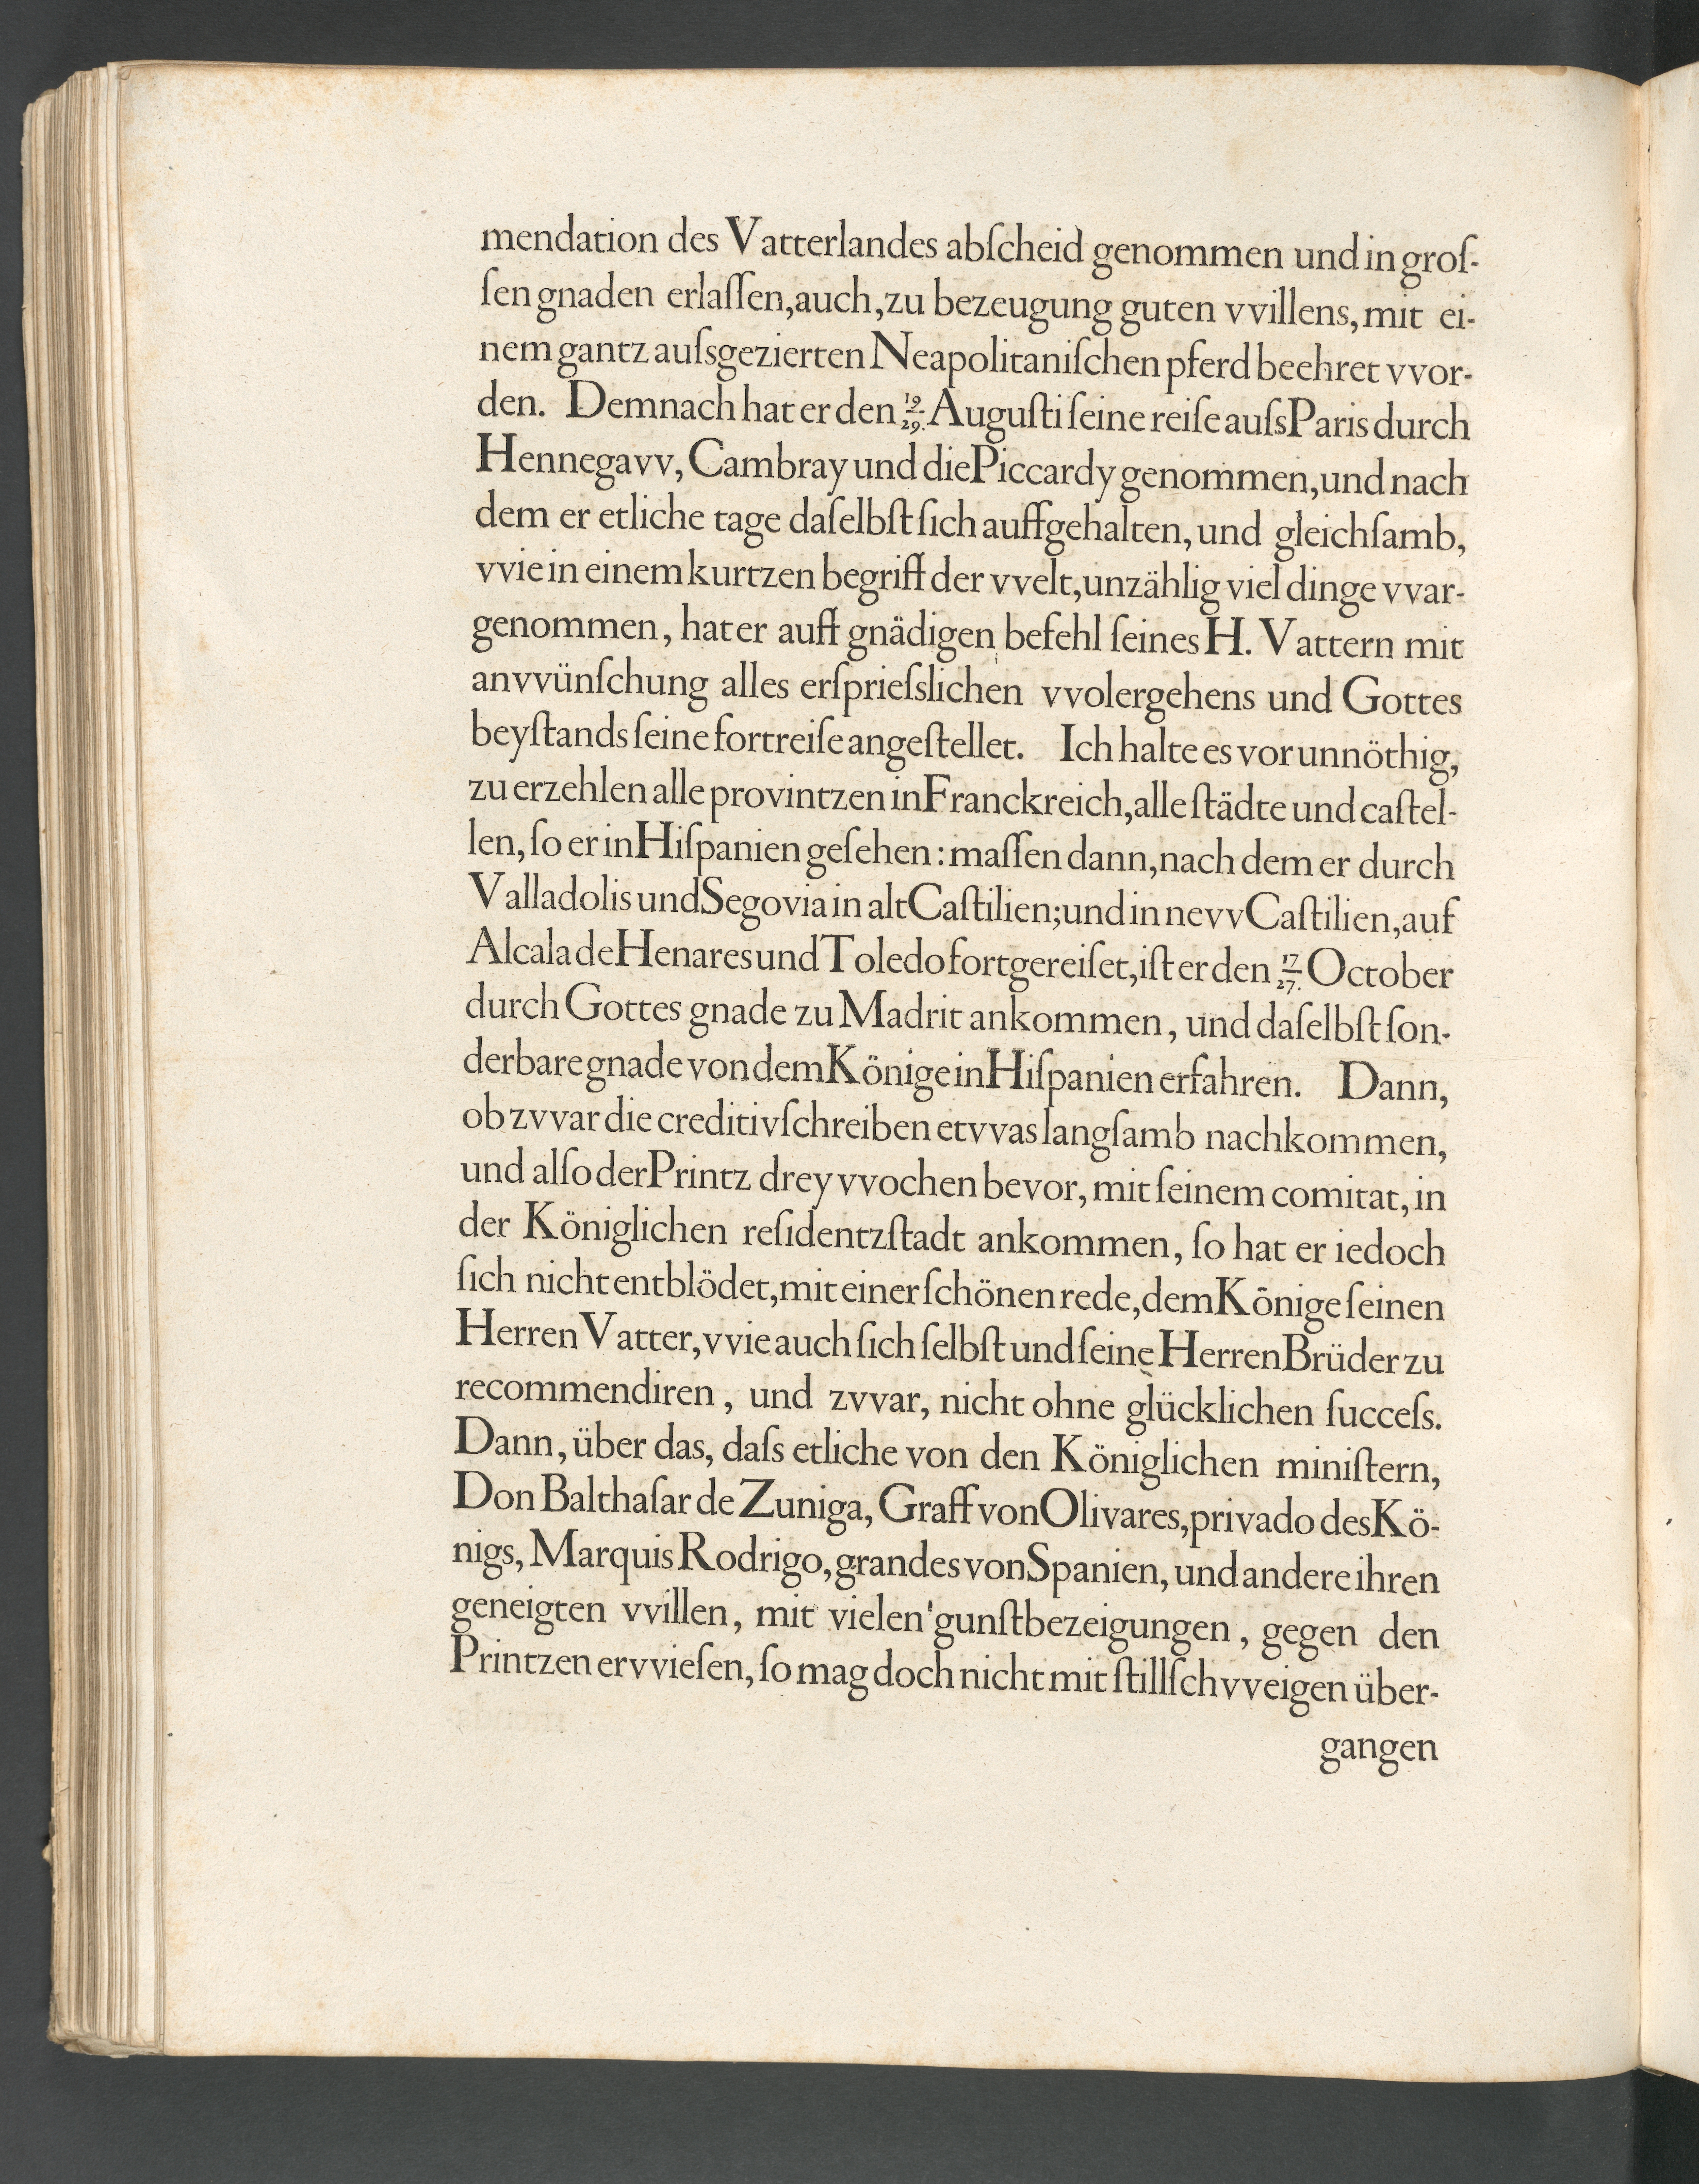 mendation des Vatterlandes abſcheid genommen und in groſ-
ſen gnaden erlaſſen, auch, zu bezeugung guten vvillens, mit ei-
nem gantz auſsgezierten Neapolitaniſchen pferd beehret vvor-
den. Demnach hat er den 19/29. Auguſti ſeine reiſe auſs Paris durch
Hennegavv, Cambray und die Piccardy genommen, und nach
dem er etliche tage daſelbſt ſich auffgehalten, und gleichſamb,
vvie in einem kurtzen begriff der vvelt, unzählig viel dinge vvar-
genommen, hat er auff gnädigen befehl ſeines H. Vattern mit
anvvünſchung alles erſprieſslichen vvolergehens und Gottes
beyſtands ſeine fortreiſe angeſtellet. Ich halte es vor unnöthig,
zu erzehlen alle provintzen in Franckreich, alle ſtädte und caſtel-
len, ſo er in Hiſpanien geſehen: maſſen dann, nach dem er durch
Valladolis und Segovia in alt Caſtilien; und in nevv Caſtilien, auf
Alcala de Henares und Toledo fortgereiſet, iſt er den 17/27. October
durch Gottes gnade zu Madrit ankommen, und daſelbſt ſon-
derbare gnade von dem Könige in Hiſpanien erfahren. Dann,
ob zvvar die creditivſchreiben etvvas langſamb nachkommen,
und alſo der Printz drey vvochen bevor, mit ſeinem comitat, in
der Königlichen reſidentzſtadt ankommen, ſo hat er iedoch
ſich nicht entblödet, mit einer ſchönen rede, dem Könige ſeinen
Herren Vatter, vvie auch ſich ſelbſt und ſeine Herren Brüder zu
recommendiren, und zvvar, nicht ohne glücklichen ſucceſs.
Dann, über das, daſs etliche von den Königlichen miniſtern,
Don Balthaſar de Zuniga, Graff von Olivares, privado des Kö-
nigs, Marquis Rodrigo, grandes von Spanien, und andere ihren
geneigten vvillen, mit vielen gunſtbezeigungen, gegen den
Printzen ervvieſen, ſo mag doch nicht mit ſtillſchvveigen über-
gangen